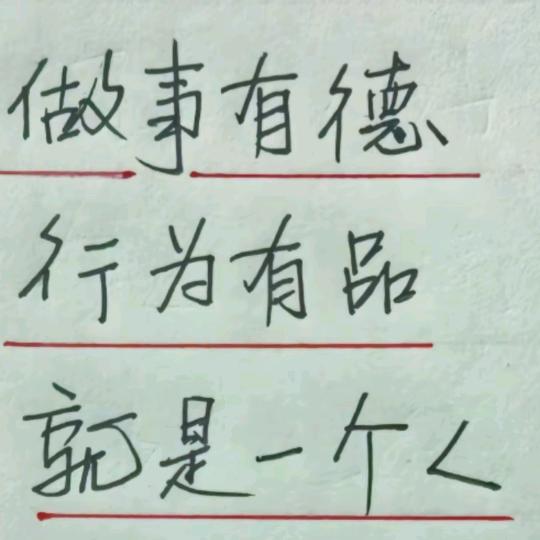 做事有德
行为有品
就是一个人